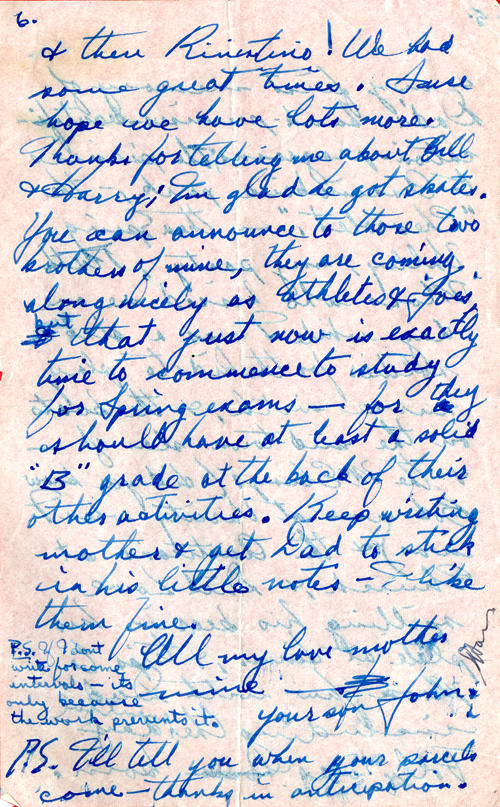 6.
& then Rinestino! We had
some great times. Sure
hope we have lots more.
Thanks for telling me about Bill
& Harry; I'm glad he got skates.
You can announce to those two
brothers of mine, they are coming
along nicely as athletes & "Joes,"
but that just now is exactly
time to commence to study
for Spring exams — for they
should have at least a solid
"B" grade at the back of their
other activities. Keep writing
mother & get Dad to stick
in his little notes — I like
them fine.
All my love mother
mine —
your son John
P.S. If I dont
write for some
intervals — its
only because
the work prevents it.
P.S. I'll tell you when your parcels
come — thanks in anticipation.